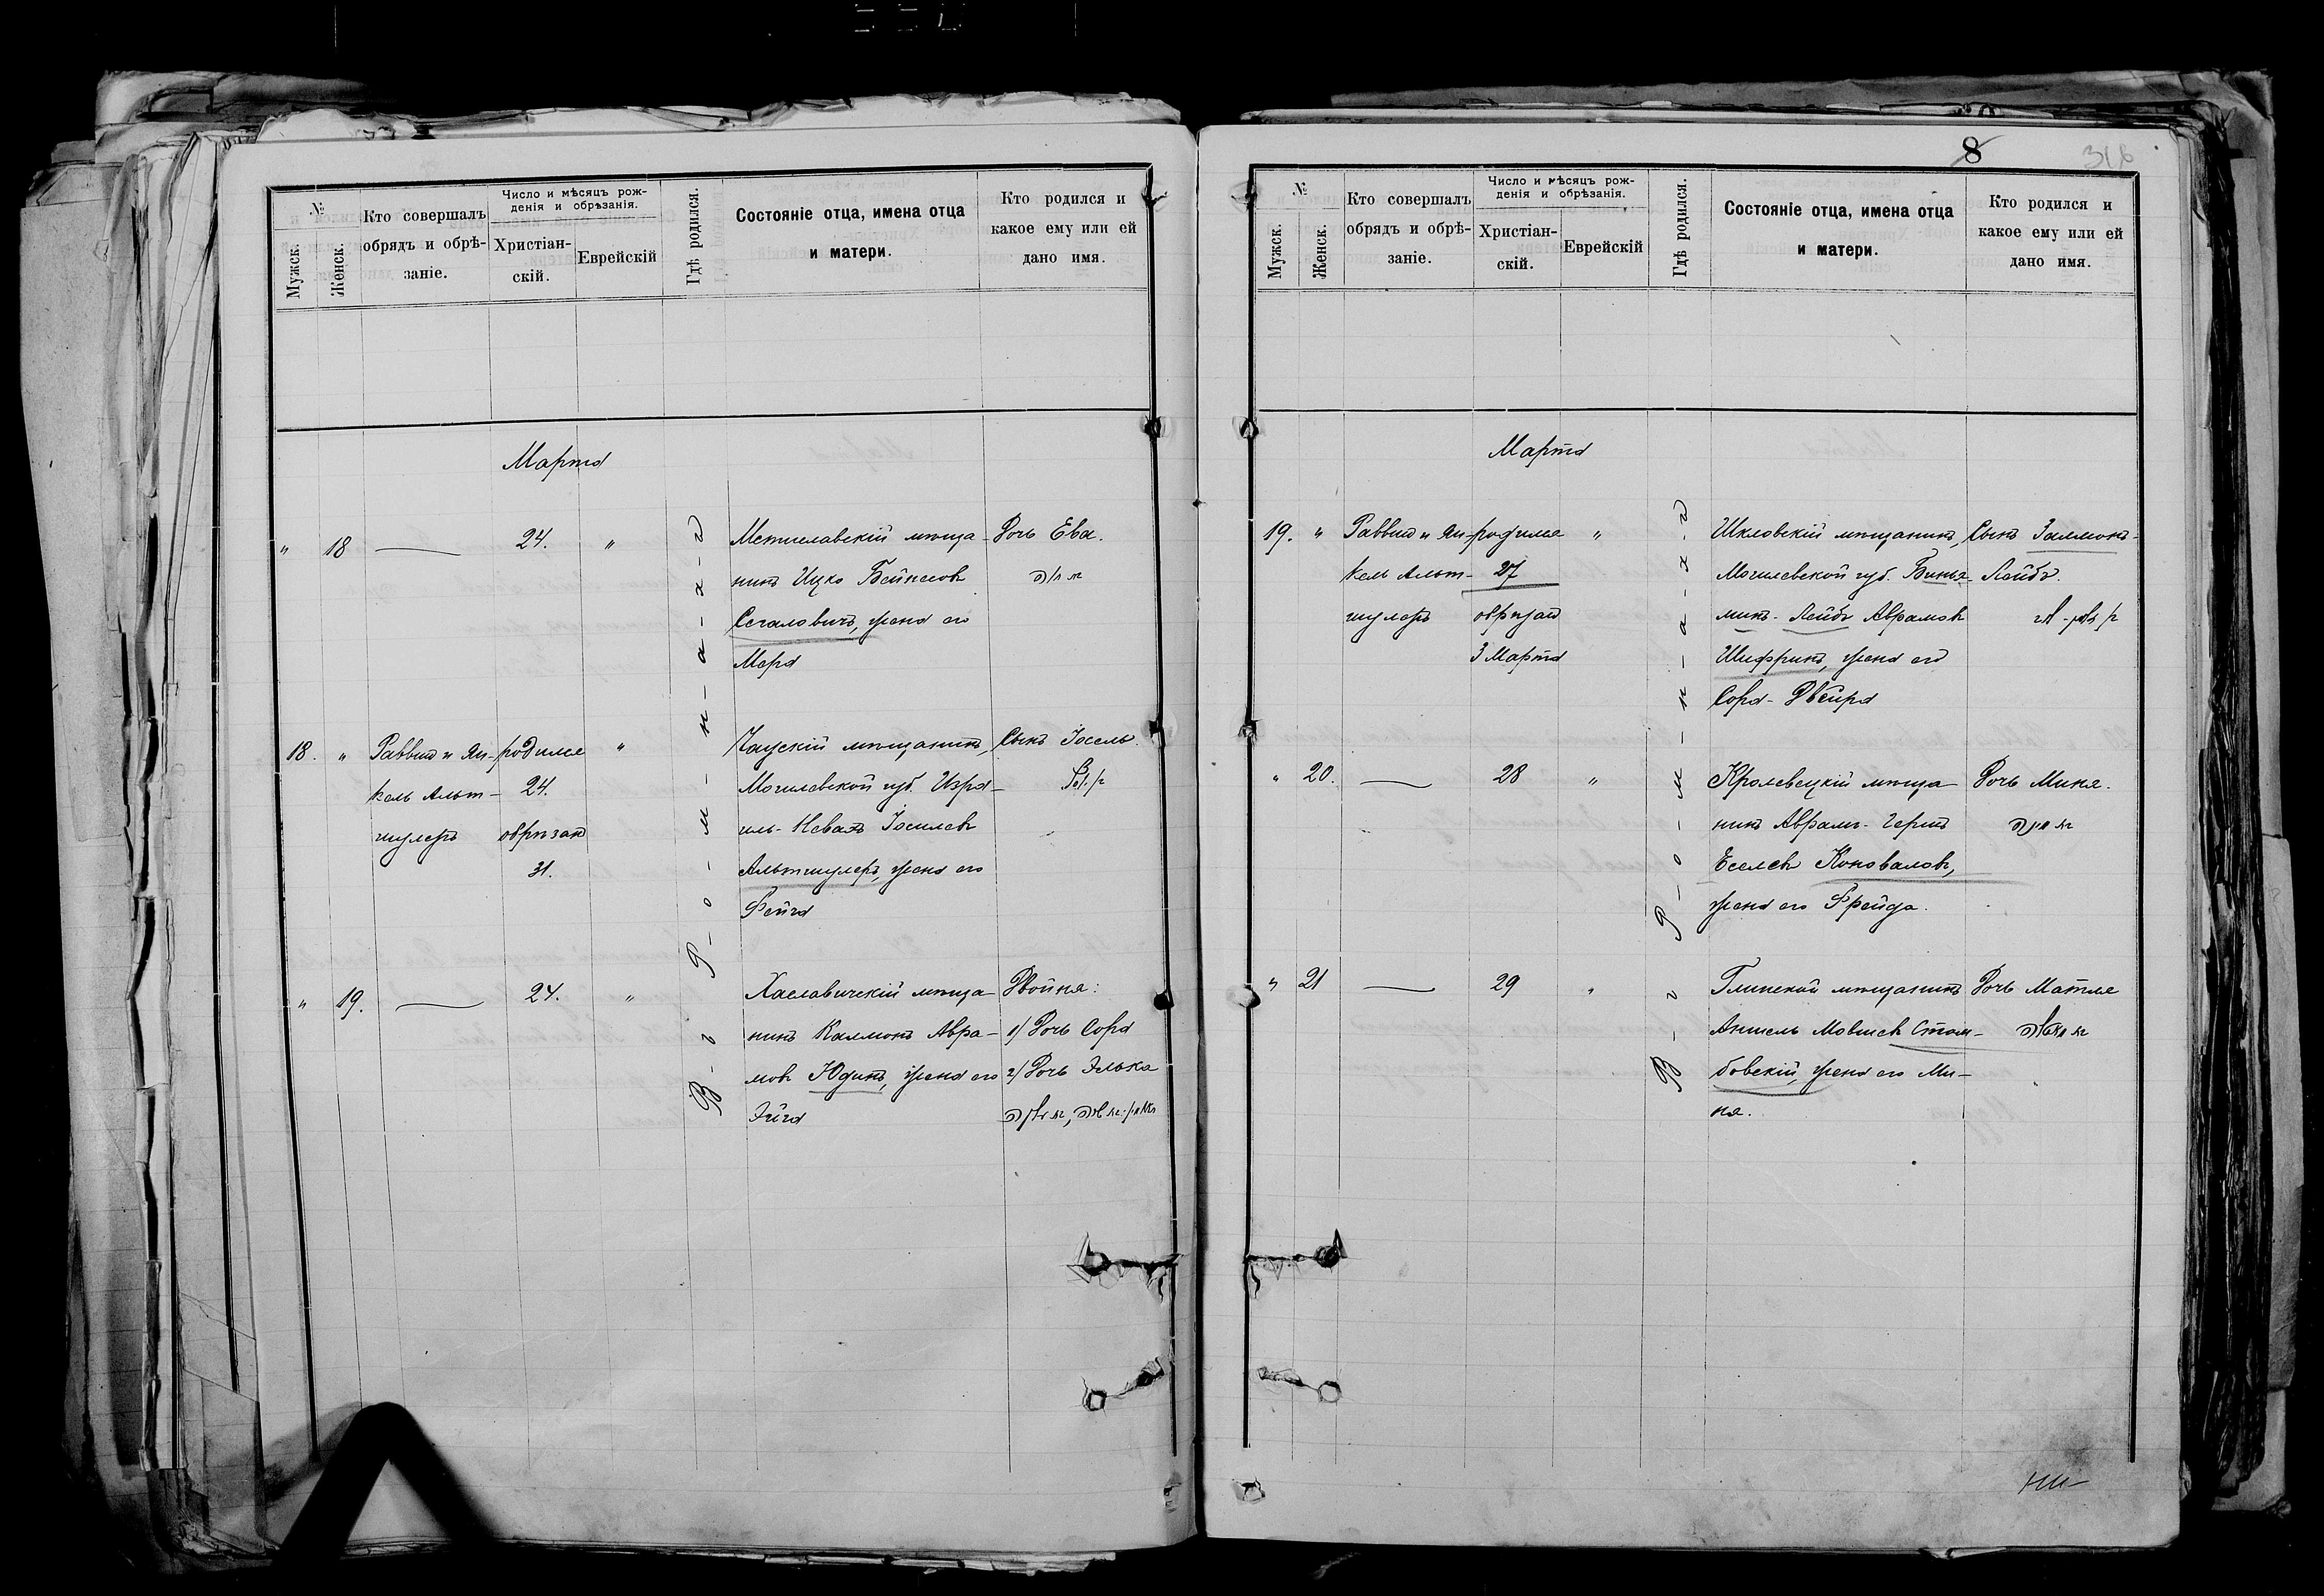 №
Мужск.
Женск.
Кто совершалъ
обрядъ и обрѣ-
заніе.
Число и мѣсяцъ рож-
денія и обрѣзанія.
Христіан-
скій.
Еврейскій
Гдѣ родился.
Состояніе отца, имена отца
и матери.
Кто родился и
какое ему или ей
дано имя.
Марта
" 18 — 24. "
Мстиславскій мѣща-
нинъ Ицко
Сегаловичъ, жена его
Мера
Дочь Ева.
18. " Раввинъ Ян-
кель Альт-
шулеръ
родился
24.
обрѣзанъ
31.
"
Чаускій мѣщанинъ,
Могилевской губ. Изра-
иль- Іосилевъ
Альтшулеръ, жена его
Фейга
Сынъ Іосель.
" 19. — 24. "
Хаславичскій мѣща-
нинъ Калмонъ Авра-
мовъ Юдинъ, жена его
Двойня:
1) Дочь Сора
2) Дочь Элька
В-о Р-о-м-н-а-х-ъ
8
316
№
Мужск.
Женск.
Кто совершалъ
обрядъ и обрѣ-
заніе.
Число и мѣсяцъ рож-
денія и обрѣзанія.
Христіан-
скій.
Еврейскій
Гдѣ родился.
Состояніе отца, имена отца
и матери.
Кто родился и
какое ему или ей
дано имя.
Марта
19. " Раввинъ Ян-
кель Альт-
шулеръ
родился
27
обрѣзанъ
3 Марта
"
Шкловскій мѣщанинъ,
Могилевской губ. Бинья-
минъ- Лейбъ Абрамовъ
Шифринъ, жена его
Сора- Двейра
Сынъ Залмонъ-
Лейбъ.
" 20. — 28 "
Кролевецкій мѣща-
нинъ Абрамъ-
Еселевъ Коноваловъ,
жена его Фрейда.
Дочь Миня.
" 21 — 29 "
Глинскій мѣщанинъ
Аншель Мовшевъ
жена его Ми-
ня.
Дочь Матля
В-о Р-о-м-н-а-х-ъ